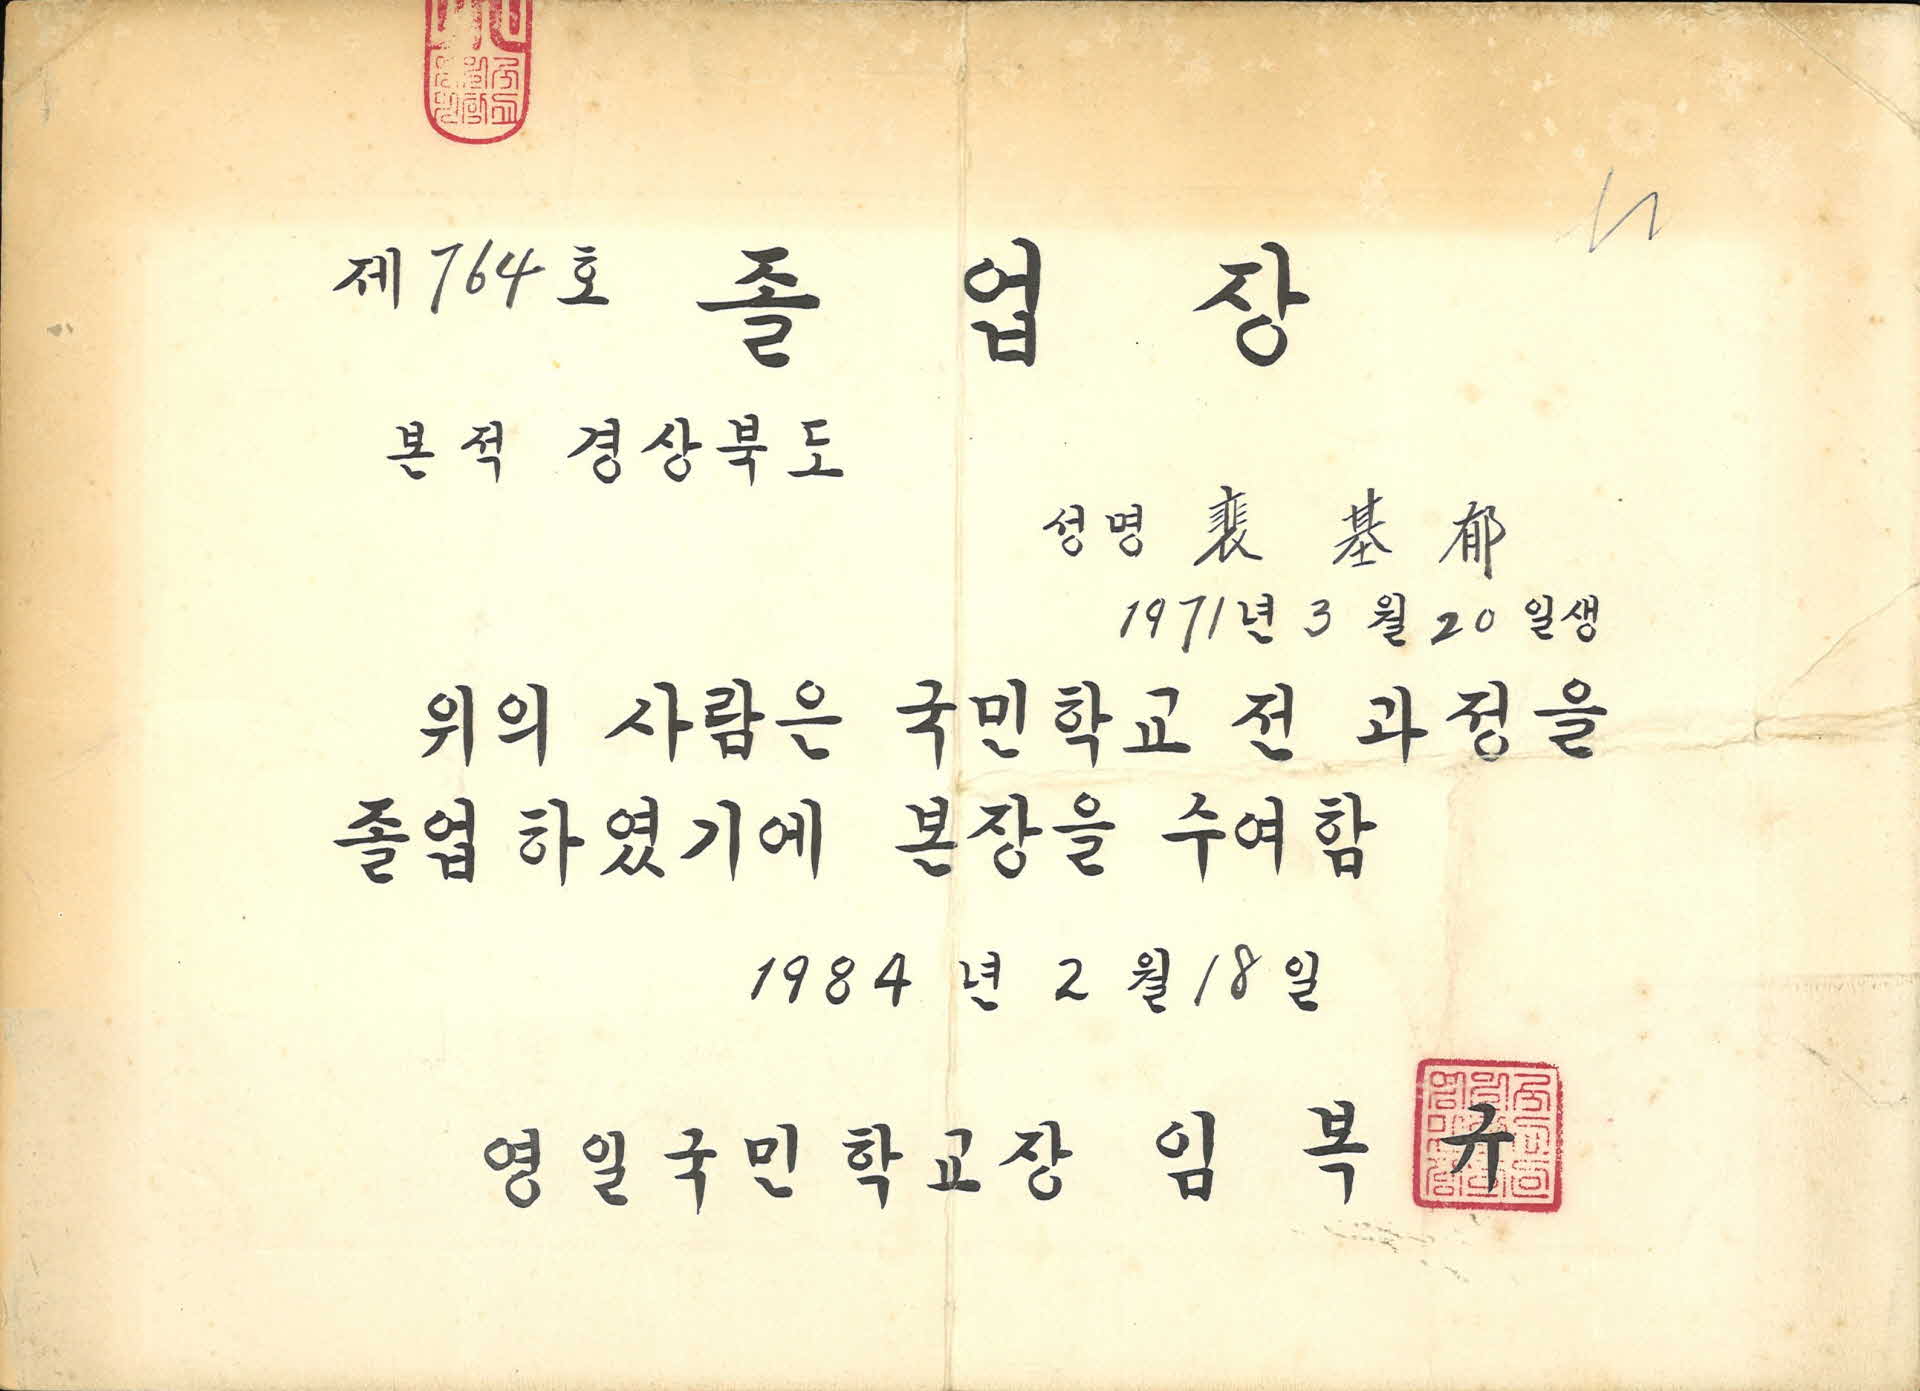 제764호 졸업장
본적 경상북도
성명 裵基郁
1971년 3월 20일생
위의 사람은 국민학교 전 과정을
졸업하였기에 본장을 수여함
1984년 2월 18일
영일국민학교장 임복규